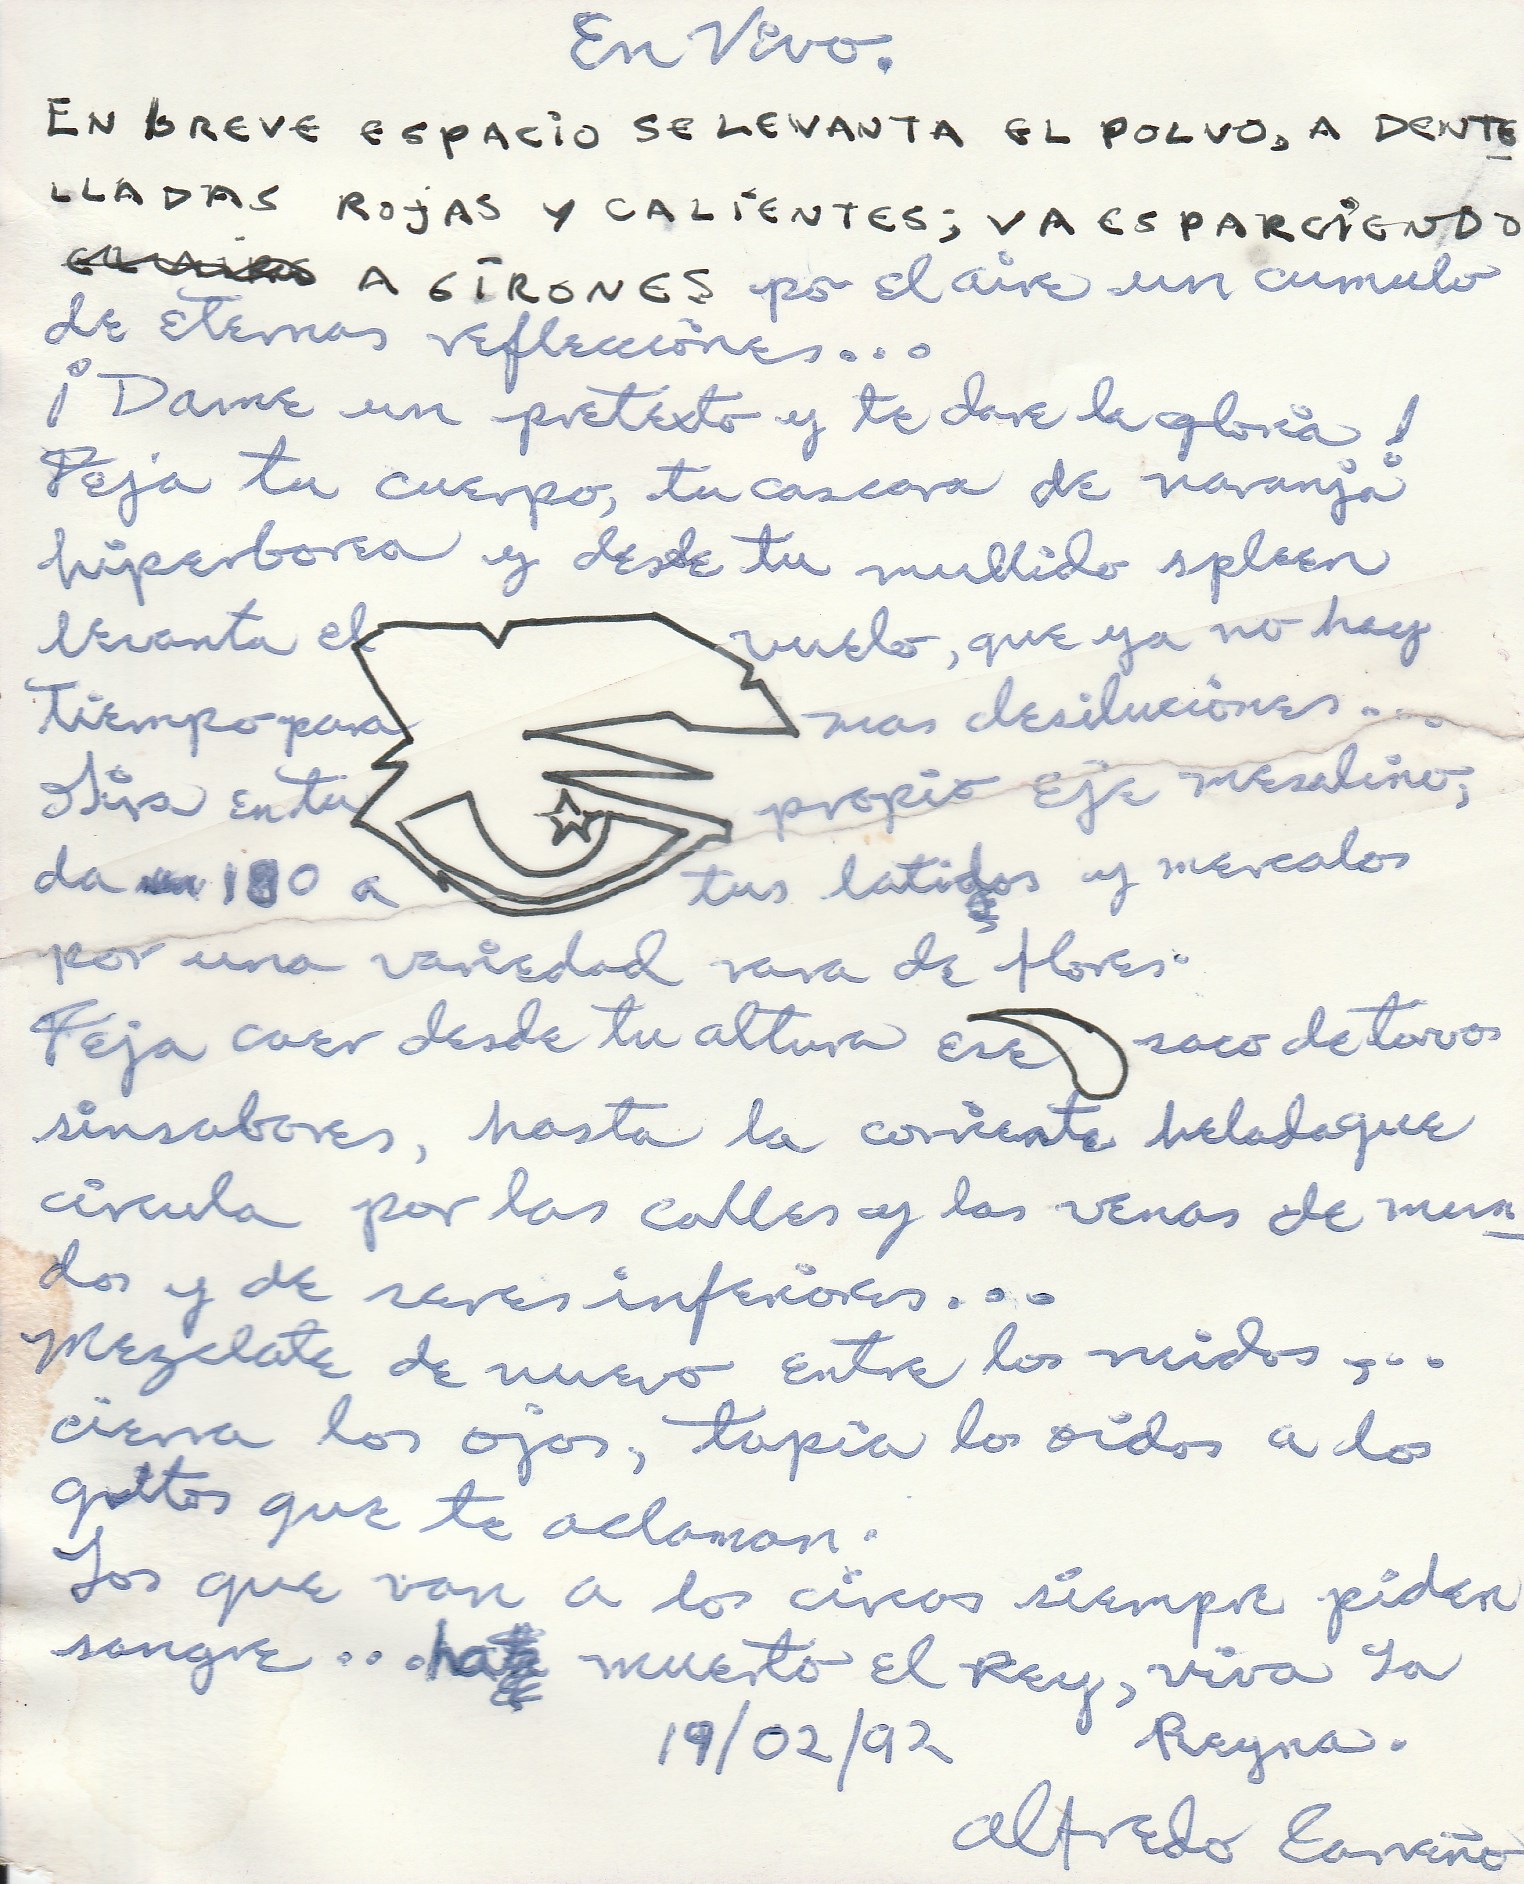 En Vivo.
EN BREVE ESPACIO SE LEVANTA EL POLVO, A DENTE
LLADAS ROJAS Y CALIENTES; VA ESPARCIENDO
A GIRONES por el aire un cumulo
de eternas reflecciones...
¡Dame un pretexto y te dare la gloria!
Teja tu cuerpo, tu cascara de naranja
hiperborea y desde tu mullido spleen
levanta el vuelo, que ya no hay
tiempo para mas desiluciones....
Gira en tu propio eje mesalino,
da 180 a tus latidos y mercalos
por una variedad rara de flores.
Teja caer desde tu altura ese saco de torvos
sinsabores, hasta la corriente helada que
circula por las calles y las venas de mun
dos y de seres inferiores...
Mezclate de nuevo entre los ruidos,...
cierra los ojos, tapia los oidos a los
gritos que te aclaman.
Los que van a los circos siempre piden
sangre...ha muerto el Rey, viva La
19/02/92 Reyna.
Alfredo Carreño